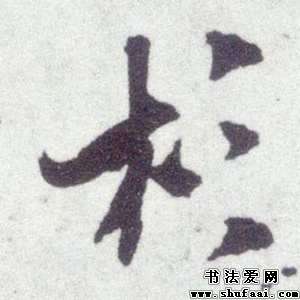 杉
书法爱网
www.shufaai.com